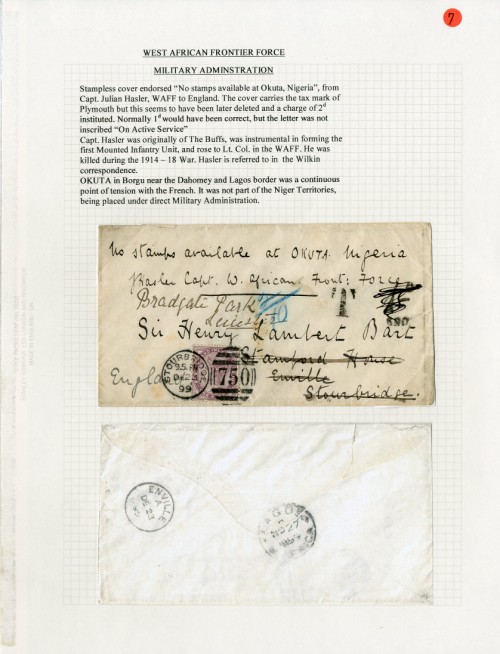 7
WEST AFRICAN FRONTIER FORCE
MILITARY ADMINSTRATION
Stampless cover endorsed “No stamps available at Okuta, Nigeria”, from
Capt. Julian Hasler, WAFF to England. The cover carries the tax mark of
Plymouth but this seems to have been later deleted and a charge of 2d
instituted. Normally 1d would have been correct, but the letter was not
inscribed “On Active Service”
Capt. Hasler was originally of The Buffs, was instrumental in forming the
first Mounted Infantry Unit, and rose to Lt. Col. in the WAFF. He was
killed during the 1914 – 18 War. Hasler is referred to in the Wilkin
correspondence.
OKUTA in Borgu near the Dahomey and Lagos border was a continuous
point of tension with the French. It was not part of the Niger Territories,
being placed under direct Military Administration.
No stamps available at OKUTA Nigeria
Hasler Capt. W. African Front: Force
Bradgate Park
T
Sir Henry Lambert Bart
Stamford House
England
Enville
Stourbridge.
STOURBRIDGE
DE 23
99
750
ENVILLE
A
DE 23
LAGOS
27